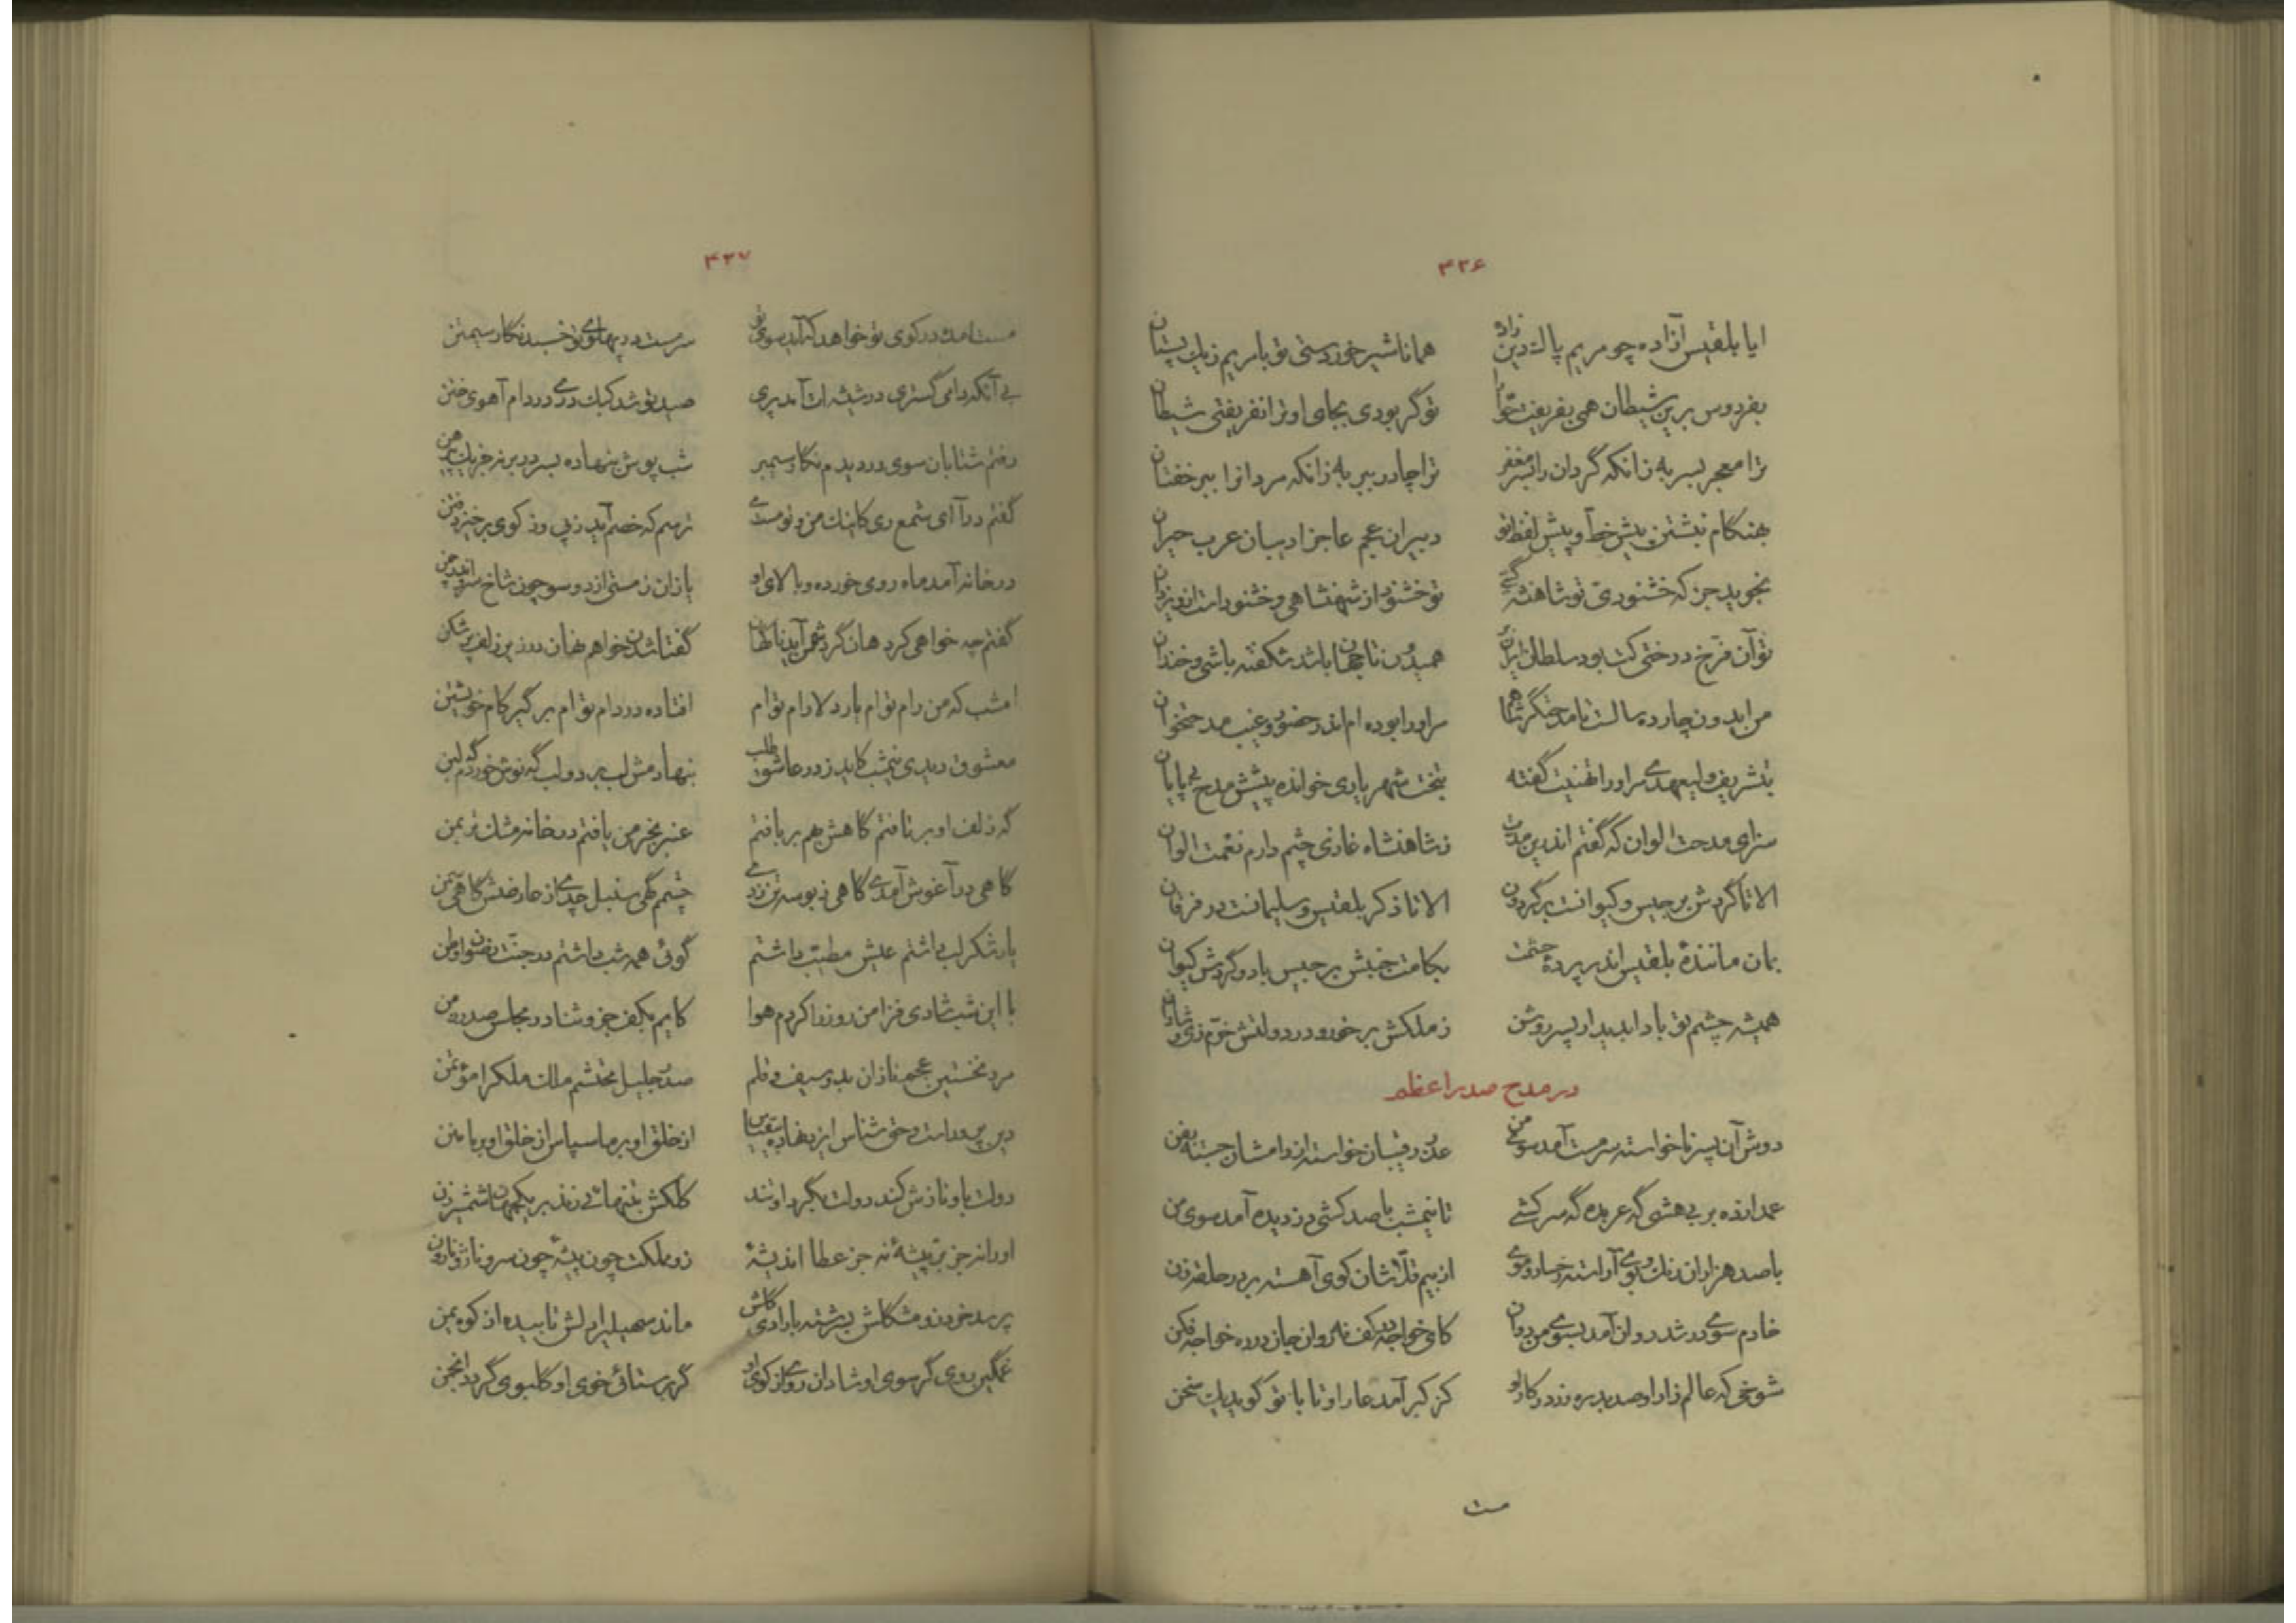 ۴۳۶
ایا بلقیس آزاده چو مریم پاك دین زاد همانا شیر خوردستی تو با مریم زیك پستان
بفردوس برین شیطان همی بفریفت حوا تو گر بودی بجای او ترا نفریفتی شیطان
ترا معجر بسر به زانکه گردان را بسر مغفر ترا چادر ببر به زانکه مردانرا ببر خفتان
بهنگام نبشتن پیش خط و پیش لفظ تو دبیران عجم عاجز ادیبان عرب حیران
نجوید جز که خشنودی تو شاهنشه تو خشنود از شهنشاهی و خشنود است ازو یزدان
تو آن فرخ درختی کت بود سلطان همیدون تا جهان باشد شکفته باشی و خندان
من ایدون چارده سالست تا مر او را بوده ام اندر حضور و غیب مدحتخوان
بتشریف ولیعهدی مر او را تهنیت گفته بتخت شهریاری خوانده پیشش مدح بی پایان
سزای مدحت الوان که گفتم اندرین مدت ز شاهنشاه غازی چشم دارم نعمت الوان
الا تا گردش برجیس و کیوانست بر گردون الا تا ذکر بلقیس و سلیمانست در فرقان
بمان مانندهٔ بلقیس اندر پردهٔ حشمت بکامت جنبش برجیس باد و گردش کیوان
همیشه چشم تو بادا بدیدار پسر روشن ز ملکش برخور و در دولتش خرم زی و شادان
در مدح صدر اعظم
دوش آن پسر ناخواسته سرمست آمد سوی من عذر رقیبان خواسته از دامشان جسته بفن
عمدا زده بر بی هشی گه عربده گه سرکشی تا نیمشب با صد کشی دزدیده آمد سوی من
با صد هزاران رنك و بوی آراسته رخسار و موی از بیم قلاشان کوی آهسته بر در حلقه زن
خادم سوی در شد روان آمد بسوی من دوان کای خواجه در کف نه روان جان در ره خواجه فکن
شوخی که عالم زار او صد بدره زر در کار او کز کبر آمد عار او تا با تو گوید یك سخن
مست
۴۳۷
مست آمده در کوی تو خواهد که آید سوی تو سرمست در پهلوی تو خسبد نگار سیمتن
بی آنکه دامی گستری در شیشه ات آمد پری صید تو شد کبك دری در دام آهوی ختن
رفتم شتابان سوی در دیدم نگار سیمبر شب پوش بنهاده بسر در بر نه جز یك پیرهن
گفتم درآ ای شمع ری کاینك من و تو مست می ترسم که خصم آید ز پی وز کوی برخیزد فتن
در خانه آمد ماه روی خورده و بالای او یازان ز مستی از دو سو چون شاخ سرو اندر چمن
گفتم چه خواهی کرد هان گر دشمن آید ناگهان گفتا شدن خواهم نهان در زیر زلف پر شکن
امشب که من رام توام یار دلارام توام افتاده در دام توام بر گیر کام خویشتن
معشوق دیدی نیمشب کاید ز در عاشق طلب بنهادمش لب بر دو لب گه نوش خوردم گه لبن
گه زلف او برتافتم گاهش بهم بربافتم عنبر بخرمن یافتم در خانه مشك تر بمن
گاهی در آغوش آمدی گاهی ز بوسه تن زدی چشم گهی سنبل چدی از عارضش گاهی سمن
یار شکر لب داشتم عیش مطیب داشتم گوئی همه شب داشتم در جنت رضوان وطن
با این شب شادی فزا من روز را کردم هوا کایم بکف جزو ثنا در مجلس صدر زمن
مرد نخستین عجم نازان بدو سیف و قلم صدر جلیل محتشم ملك ملك را مؤتمن
دین پرور است و حق شناس ایزد نهاده بیقیاس از خلق او بر ما سپاس از خلق او بر ما منن
دولت باو نازش کند دولت بگرد او تند کلکش بتنهائی زند بر یکجهان شمشیر زن
او را نه جز بر پیشهٔ نه جز عطا اندیشهٔ زو مملکت چون بیشهٔ چون سرو ناز و نارون
ماند سهیلی را دلش تابیده از کوه یمن
غمگین روی گر سوی او شادان روی از کوی او گر برستائی خوی او گلبوی گردد انجمن